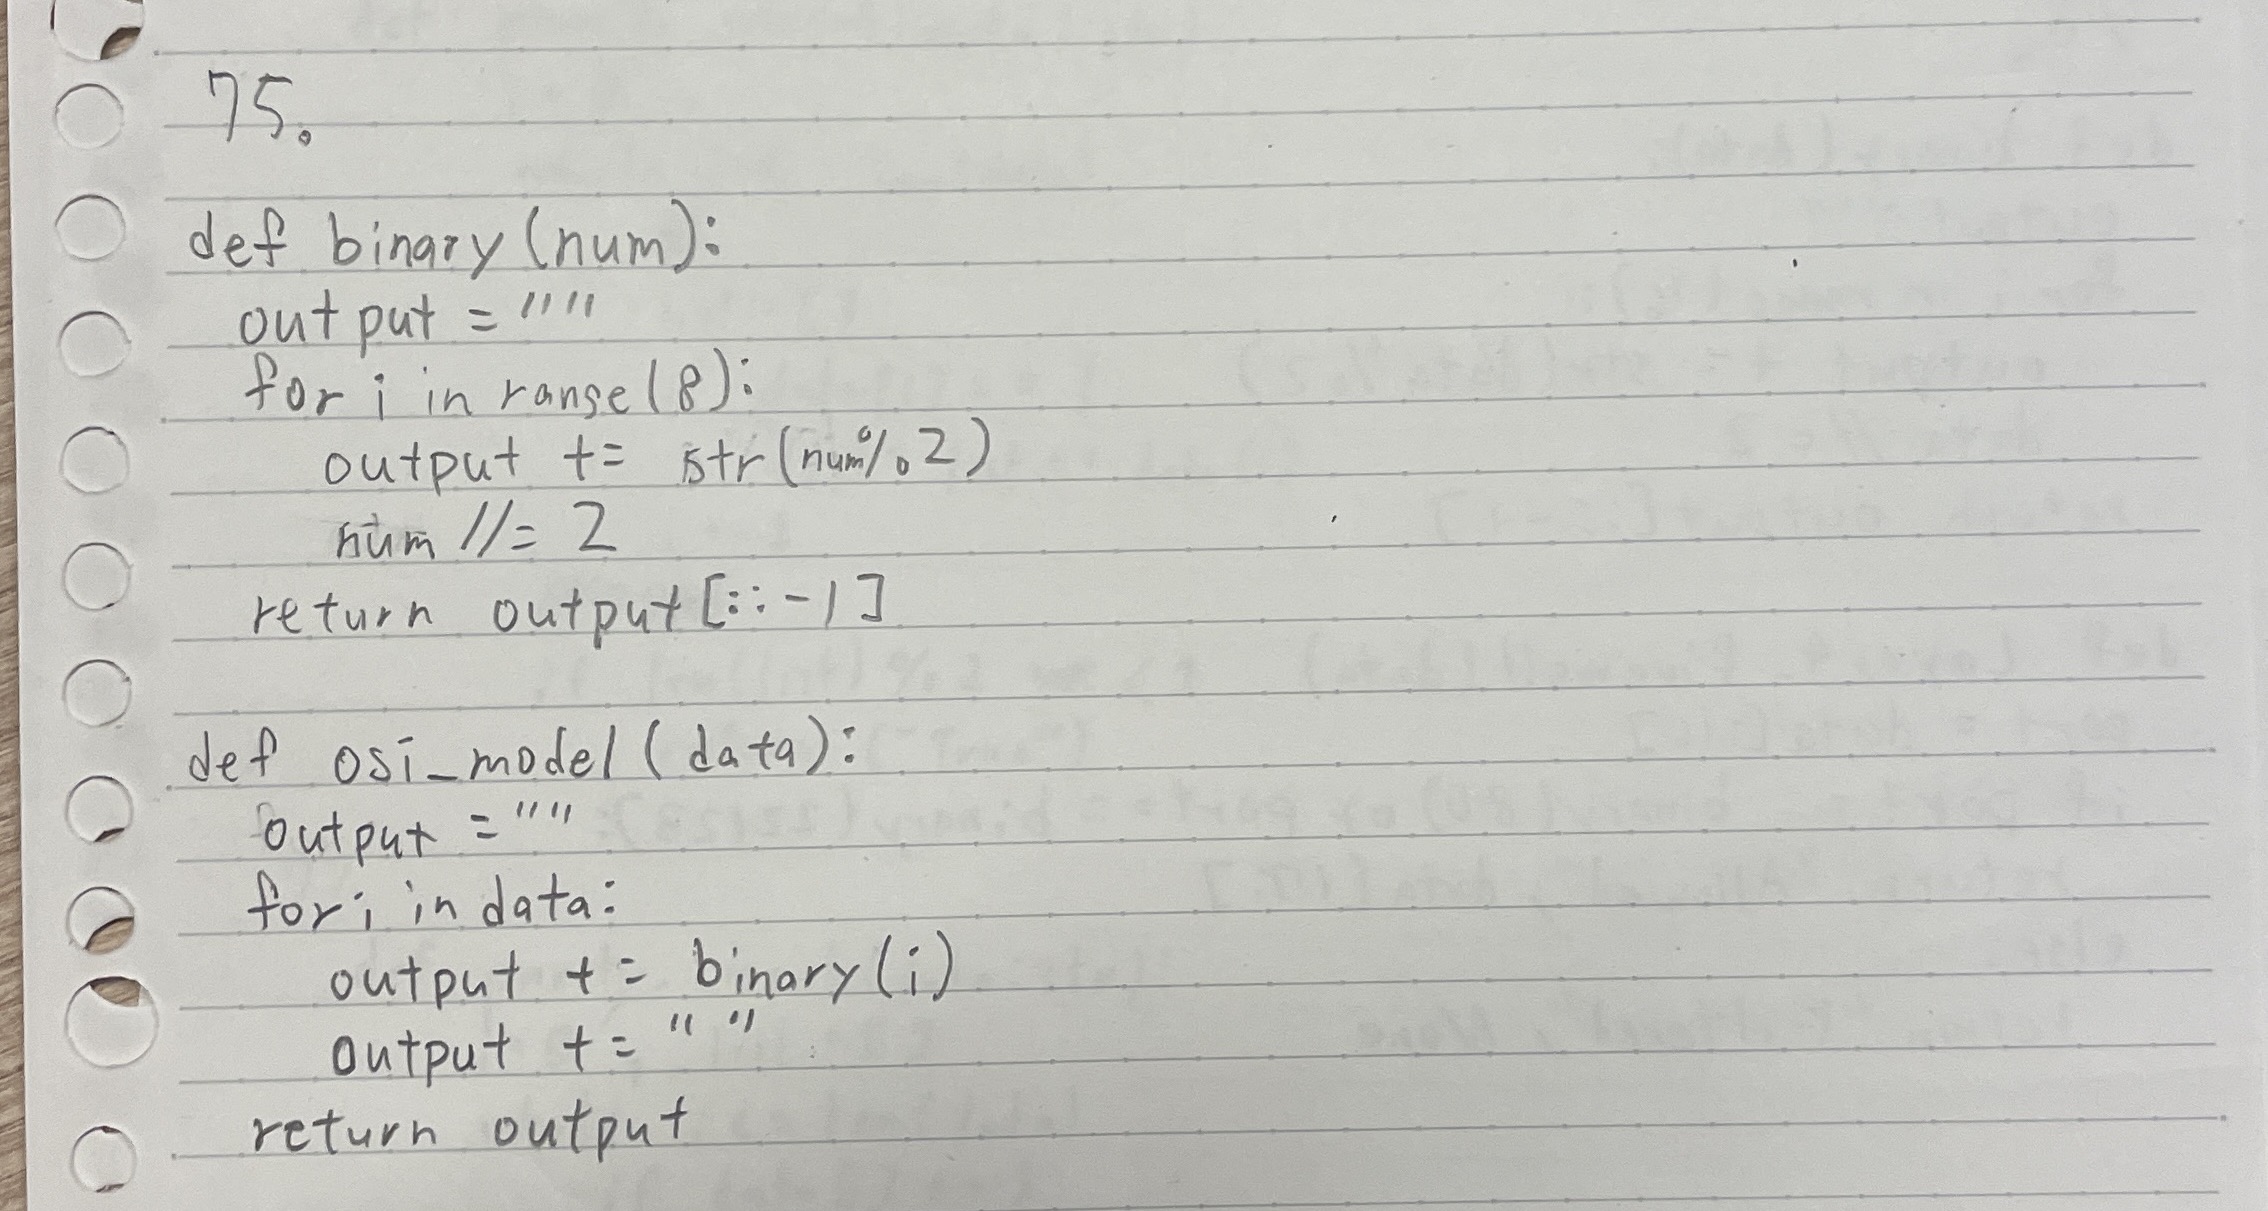 75.
def binary(num):
output = ""
for i in range(8):
output += str(num%2)
num //= 2
return output[::-1]
def osi_model(data):
output = ""
for i in data:
output += binary(i)
output += " "
return output